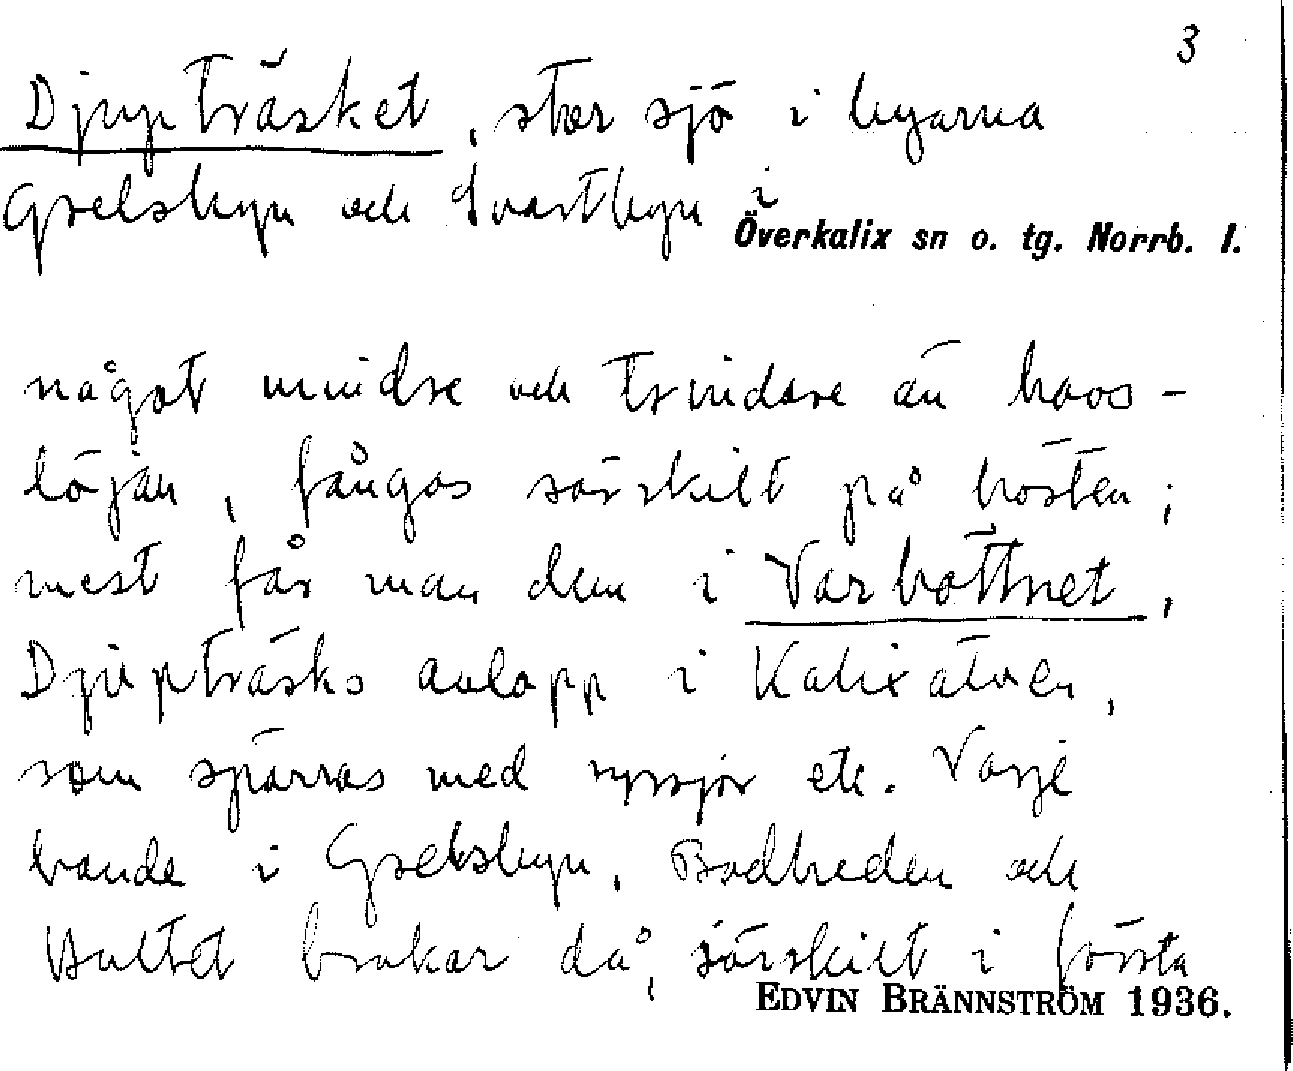 3
Djupträsket, stor sjö i byarna
Grelsbyn och Svartbyn i
Överkalix sn o. tg. Norrb. l.
något mindre och trindare än havs-
löjan, fångas särskilt på hösten;
mest får man dem i Varbottnet,
Djupträsks avlopp i Kalixälven,
som spärras med ryssjor etc. Varje
bonde i Grelsbyn, Bodheden och
Bultet brukar då, särskilt i första
EDVIN BRÄNNSTRÖM 1936.